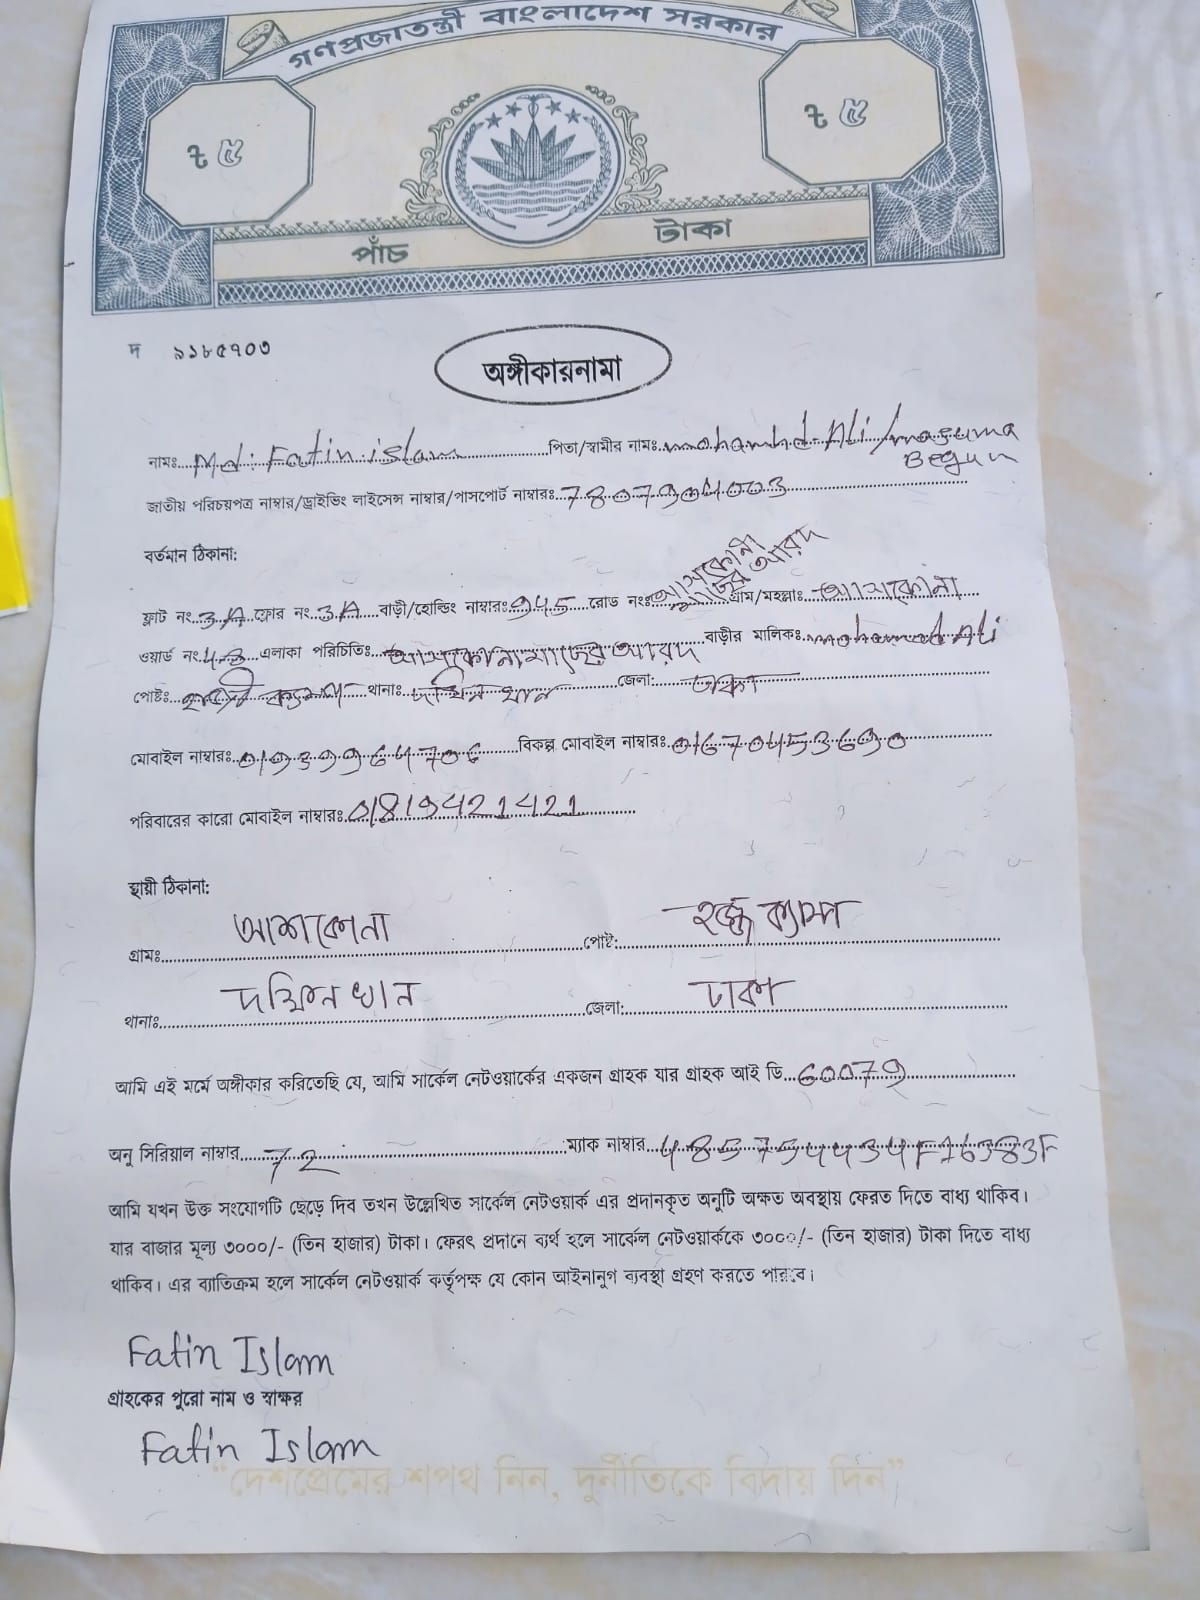 গণপ্রজাতন্ত্রী বাংলাদেশ সরকার
৳ ৫
৳ ৫
পাঁচ টাকা
দ ৯১৮৫৭০৩
অঙ্গীকারনামা
নামঃ Md: Fatin islam পিতা/স্বামীর নামঃ mohamhd Ali / masuma Begum
জাতীয় পরিচয়পত্র নাম্বার/ড্রাইভিং লাইসেন্স নাম্বার/পাসপোর্ট নাম্বারঃ 7807904003
বর্তমান ঠিকানা:
ফ্লাট নং 3A ফ্লোর নং 3A বাড়ী/হোল্ডিং নাম্বারঃ 945 রোড নংঃ আশকোনা গ্রাম/মহল্লাঃ আশকোনা
ওয়ার্ড নং এলাকা পরিচিতিঃ আশকোনা বাড়ীর মালিকঃ mohamod Ali
পোষ্টঃ থানাঃ দক্ষিন খান জেলা: ঢাকা
মোবাইল নাম্বারঃ বিকল্প মোবাইল নাম্বারঃ 01670453690
পরিবারের কারো মোবাইল নাম্বারঃ 01819421421
স্থায়ী ঠিকানা:
গ্রামঃ আশকোনা পোষ্ট: হজ্জ ক্যাম্প
থানাঃ দক্ষিন খান জেলা: ঢাকা
আমি এই মর্মে অঙ্গীকার করিতেছি যে, আমি সার্কেল নেটওয়ার্কের একজন গ্রাহক যার গ্রাহক আই ডি 60079
অনু সিরিয়াল নাম্বার 72 ম্যাক নাম্বার 485754434F16383F
আমি যখন উক্ত সংযোগটি ছেড়ে দিব তখন উল্লেখিত সার্কেল নেটওয়ার্ক এর প্রদানকৃত অনুটি অক্ষত অবস্থায় ফেরত দিতে বাধ্য থাকিব।
যার বাজার মূল্য ৩০০০/- (তিন হাজার) টাকা। ফেরৎ প্রদানে ব্যর্থ হলে সার্কেল নেটওয়ার্ককে ৩০০০/- (তিন হাজার) টাকা দিতে বাধ্য
থাকিব। এর ব্যাতিক্রম হলে সার্কেল নেটওয়ার্ক কর্তৃপক্ষ যে কোন আইনানুগ ব্যবস্থা গ্রহণ করতে পারবে।
Fatin Islam
গ্রাহকের পুরো নাম ও স্বাক্ষর
Fatin Islam
“দেশপ্রেমের শপথ নিন, দুর্নীতিকে বিদায় দিন”